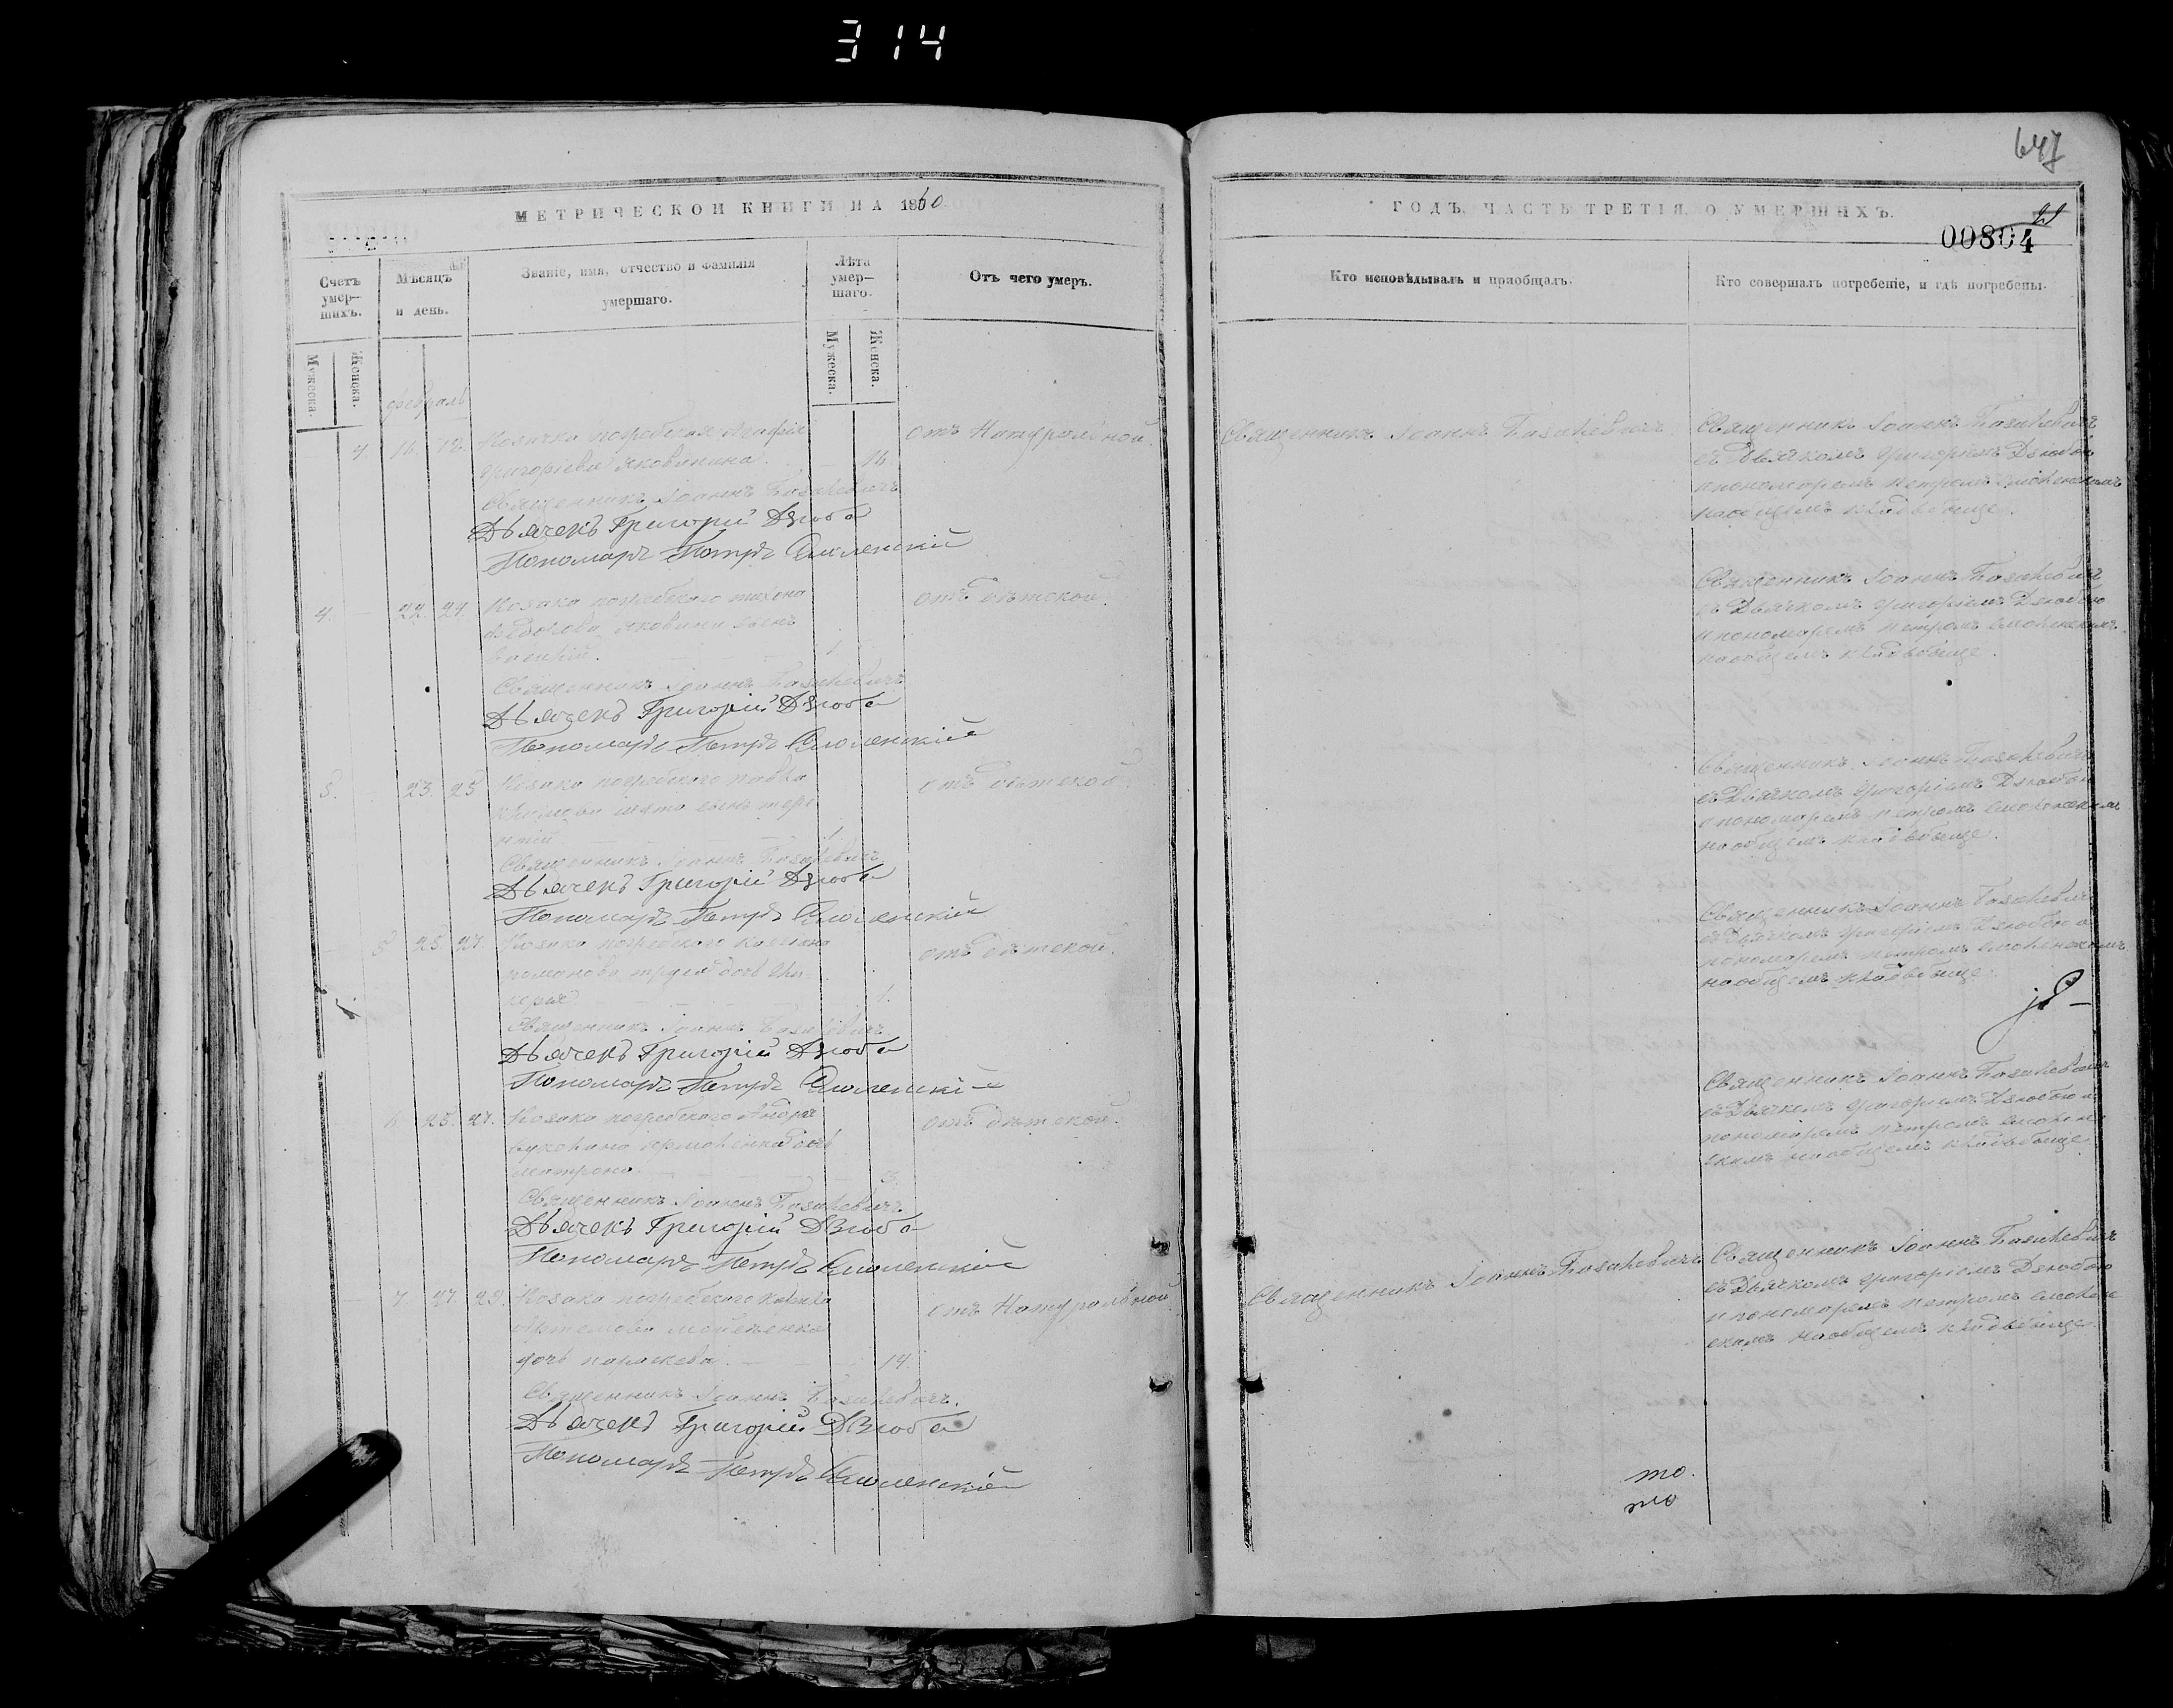 314
647
МЕТРИЧЕСКОЙ КНИГИ НА 1860
ГОДЪ, ЧАСТЬ ТРЕТІЯ, О УМЕРШИХЪ.
21
00804
Счетъ умер-шихъ.
Мѣсяцъ и день.
Званіе, имя, отчество и фамилія умершаго.
Лѣта умер-шаго.
Отъ чего умеръ.
Кто исповѣдывалъ и пріобщалъ.
Кто совершалъ погребеніе, и гдѣ погребены.
Мужеска.
Женска.
Мужеска.
Женска.
февраль
4 16. 18. Козачка погребская Агафія
Григоріева Яковинина 16
отъ Натуральной.
Священникъ Іоаннъ Базилевичъ
Священникъ Іоаннъ Базилевичъ
съ Дьячкомъ Григоріемъ Дзюбою
и пономаремъ Петромъ Смоленскимъ
на общемъ кладбище.
Священникъ Іоаннъ Базилевичъ
Дьячекъ Григорій Дзюба
Пономарь Петръ Смоленскій
4. 22. 24. Козака погребского Тихона
Федорова Яковини сынъ
1
отъ дѣтской.
Священникъ Іоаннъ Базилевичъ
съ Дьячкомъ Григоріемъ Дзюбою
и пономаремъ Петромъ Смоленскимъ
на общемъ кладбище.
Священникъ Іоаннъ Базилевичъ
Дьячекъ Григорій Дзюба
Пономарь Петръ Смоленскій
5. 23. 25 Козака погребского Павла
сынъ Тере
нтій 1.
отъ дѣтской
Священникъ Іоаннъ Базилевичъ
съ Дьячкомъ Григоріемъ Дзюбою
и пономаремъ Петромъ Смоленскимъ
на общемъ кладбище.
Священникъ Іоаннъ Базилевичъ
Дьячекъ Григорій Дзюба
Пономарь Петръ Смоленскій
5 25. 27. Козака погребского
Романова дочь Гли
керія 1.
отъ дѣтской.
Священникъ Іоаннъ Базилевичъ
съ Дьячкомъ Григоріемъ Дзюбою и
пономаремъ Петромъ Смоленскимъ
на общемъ кладбище.
Священникъ Іоаннъ Базилевичъ
Дьячекъ Григорій Дзюба
Пономарь Петръ Смоленскій
6 25. 27. Козака погребского Андрея
дочь
Матрона 3.
отъ дѣтской.
Священникъ Іоаннъ Базилевичъ
съ Дьячкомъ Григоріемъ Дзюбою и
пономаремъ Петромъ Смолен
скимъ на общемъ кладбище
Священникъ Іоаннъ Базилевичъ
Дьячекъ Григорій Дзюба
Пономарь Петръ Смоленскій
7 27. 29. Козака погребского
Артемова Мойсѣенка
дочь Параскева. 14.
отъ Натуральной
Священникъ Іоаннъ Базилевичъ
Священникъ Іоаннъ Базилевичъ
съ Дьячкомъ Григоріемъ Дзюбою
и пономаремъ Петромъ Смолен
скимъ на общемъ кладбище
Священникъ Іоаннъ Базилевичъ.
Дьячекъ Григорій Дзюба
Пономарь Петръ Смоленскій
то.
то